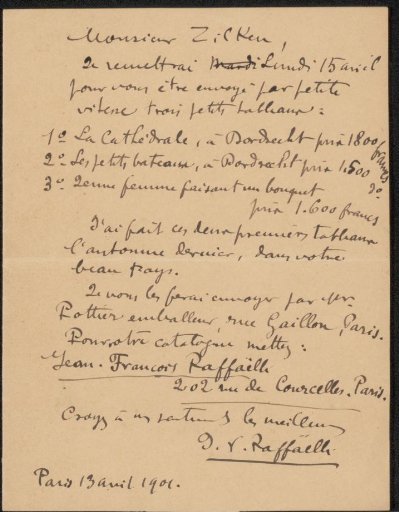 Monsieur Zilken,
Je remettrai Mardi Lundi 15 avril
pour vous être envoyé par petite
vitesse trois petits tableaux :
1º La Cathédrale, à Dordrecht prix 1800 francs
2º Les petits bateaux, à Dordrecht prix 1.500 dº
3º Jeune femme faisant un bouquet
prix 1.600 francs
J'ai fait ces deux premiers tableaux
l'automne dernier, dans votre
beau pays.
Je vous les ferai envoyer par Mr
Pottier emballeur, rue Gaillon, Paris.
Pour votre catalogue mettez :
Jean-François Raffaëlli
202 rue de Courcelles. Paris.
Croyez à mes sentiments les meilleurs
J. F. Raffaëlli
Paris 13 avril 1901.